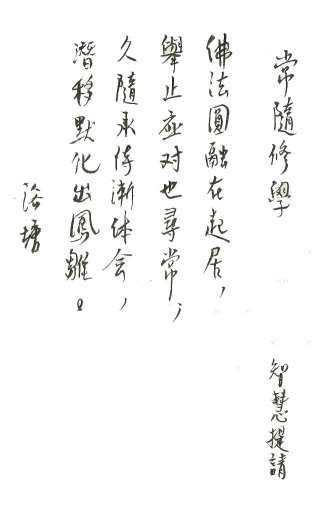 常隨修學
智慧提請
佛法圓融在起居，
舉止应对也尋常；
久隨承侍漸体会，
潛移默化出鳳雛。
洛塘